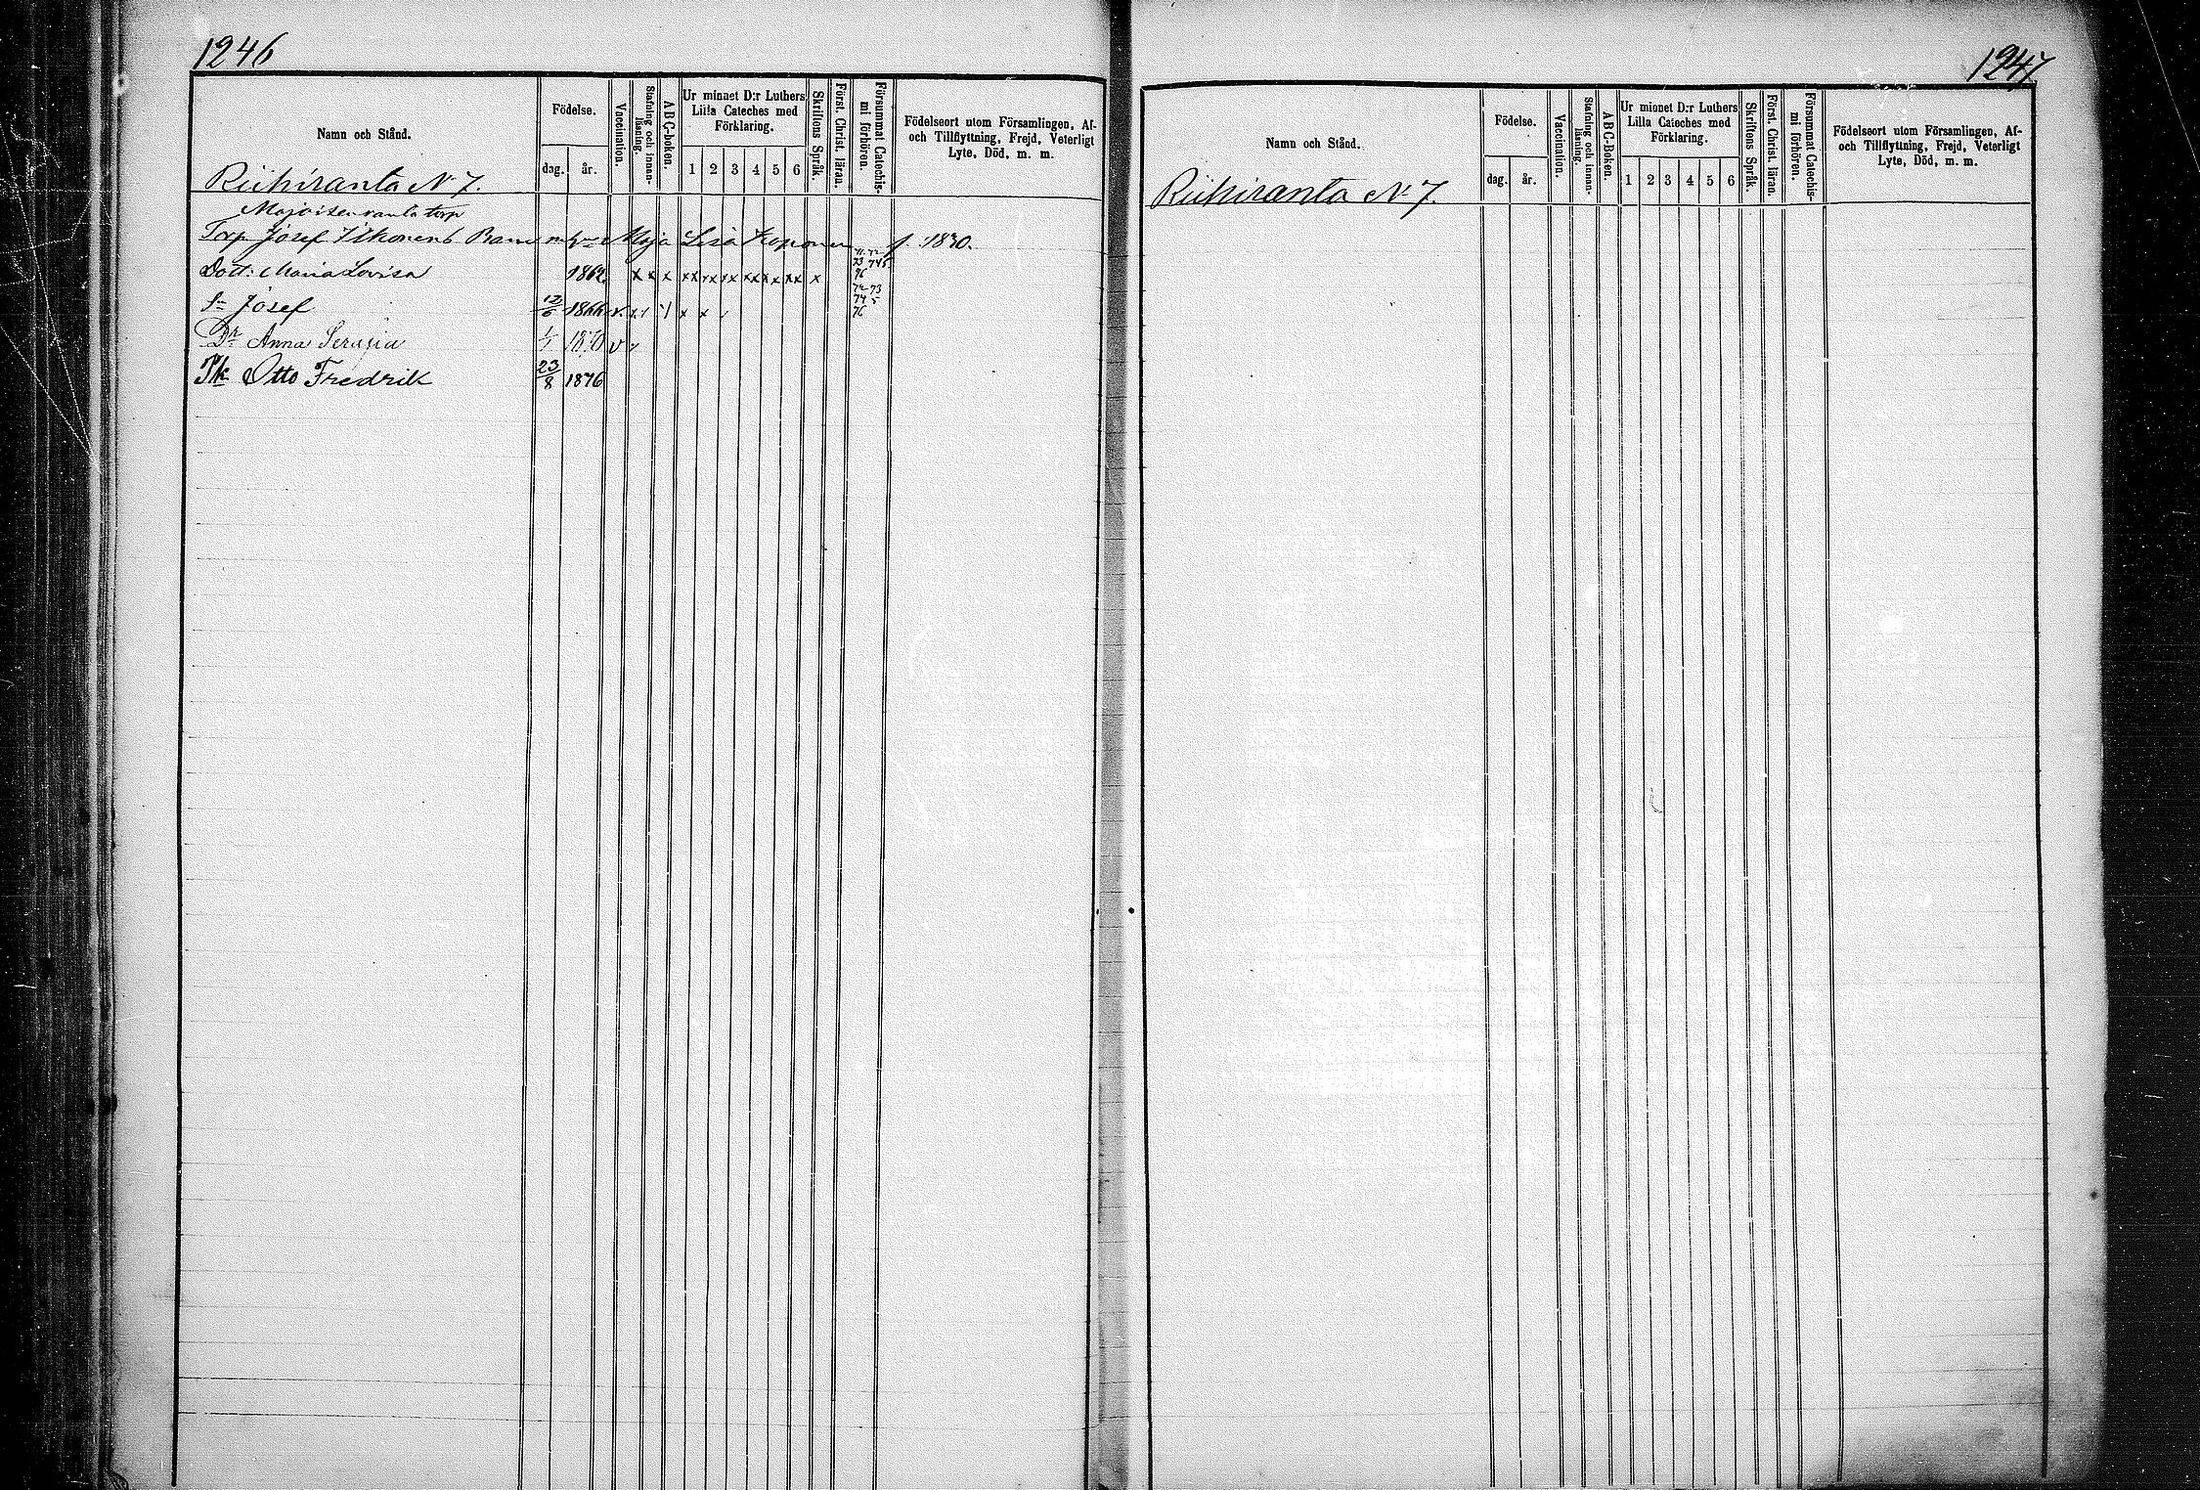 1246
Namn och Stånd.
Födelse.
dag.
år.
Vaccination.
Stafning och innan-
läsning.
ABC-boken.
Ur minnet D:r Luthers
Lilla Cateches med
Förklaring.
1 2 3 4 5 6
Skriftens Språk.
Först. Christ. läran.
Försummat Catechis-
mi förhören.
Födelseort utom Församlingen, Af-
och Tillflyttning, Frejd, Veterligt
Lyte, Död, m. m.
Riihiranta N 7.
Majoisenranta torp
Torp Josef Ikonens Barn m hu Maja Lisa Koponen f. 1830.
Dott: Maria Lovisa 1862 x x x xx xx xx xxx x xx x 71.72 73 745 76
Sn Josef 12/6 1866 v. x x x 72 73 74 5 76
Dr Anna Serafia 1/1 1870 v
Pk Otto Fredrik 23/8 1876
1247
Namn och Stånd.
Födelse.
dag.
år.
Vaccination.
Stafning och innan-
läsning.
ABC-Boken.
Ur minnet D:r Luthers
Lilla Cateches med
Förklaring.
1 2 3 4 5 6
Skriftens Språk.
Först. Christ. läran.
Försummat Catechis-
mi förhören.
Födelseort utom Församlingen, Af-
och Tillflyttning, Frejd, Veterligt
Lyte, Död, m. m.
Riihiranta N 7.